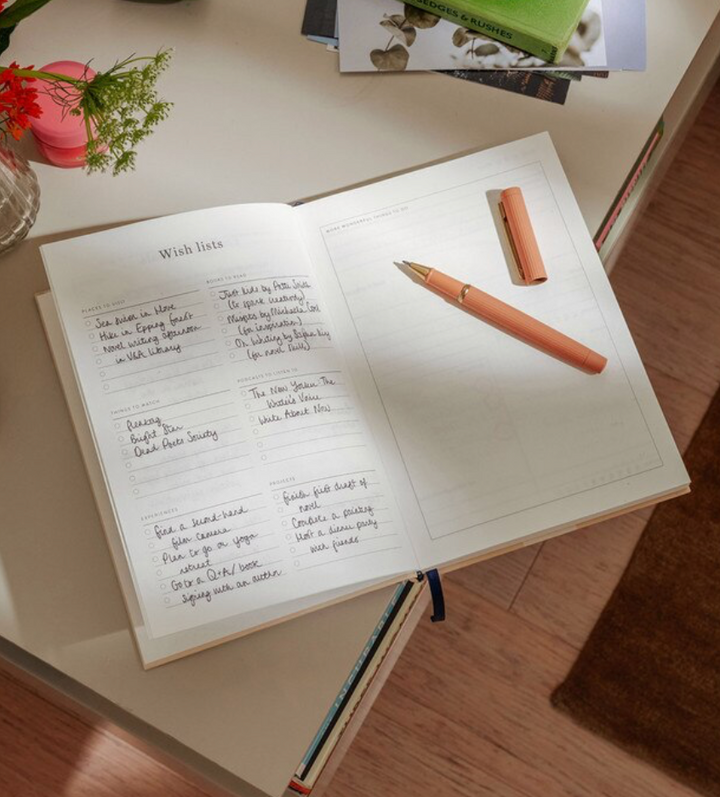 SEDGES & RUSHES
Wish lists
PLACES TO VISIT
Sea swim in Hove
Hike in Epping Forest
Novel writing afternoon
in V&A library
BOOKS TO READ
Just Kids by Patti Smith
(to spark creativity)
Misfits by Michaela Coel
(for inspiration)
On Writing by Stephen King
(for novel skills)
THINGS TO WATCH
Bright Star
Dead Poets Society
PODCASTS TO LISTEN TO
The New Yorker: The
Writer's Voice
Write About Now
EXPERIENCES
Find a second-hand
film camera
Plan to go on yoga
retreat
Go to a Q+A/book
signing with an author
PROJECTS
Finish first draft of
novel
Complete a painting
Host a dinner party
with friends
MORE WONDERFUL THINGS TO DO